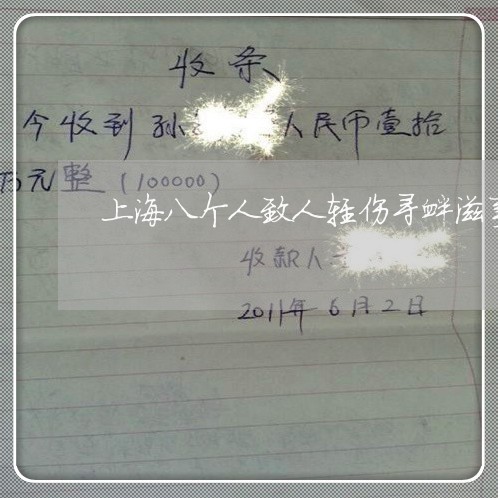 收条
今收到孙 人民币壹拾
万元整(100000)
上海八个人致人轻伤寻衅滋事
收款人
2011年6月2日